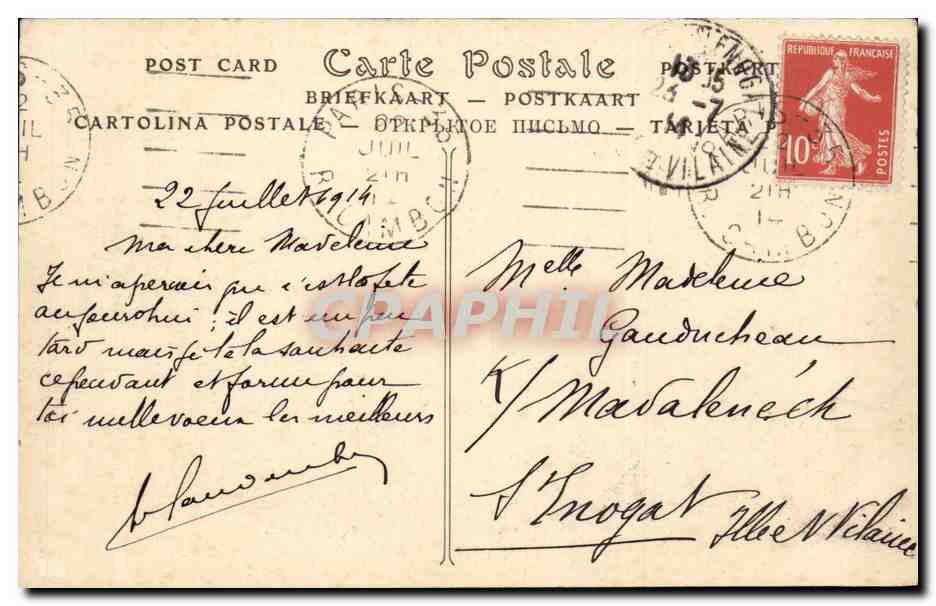 POST CARD Carte Postale POSTKART
BRIEFKAART — POSTKAART
CARTOLINA POSTALE — ОТКРЫТОЕ ПИСЬМО — TARJETA P
REPUBLIQUE FRANÇAISE
10c
POSTES
PARIS
JUIL
21H
R. CAMBON
15
23 -7
ILLE VILAINE
JUIL
21H
14
R. CAMBON
22 Juillet 1914
Ma chère Madeleine
Je m'aperçois que c'est ta fête
aujourd'hui ; il est un peu
tard mais je te la souhaite
cependant et forme pour
toi mille voeux les meilleurs
Melle Madeleine
Gauducheau
K/ Madalenéch
St Enogat Ille & Vilaine
CPAPHIL